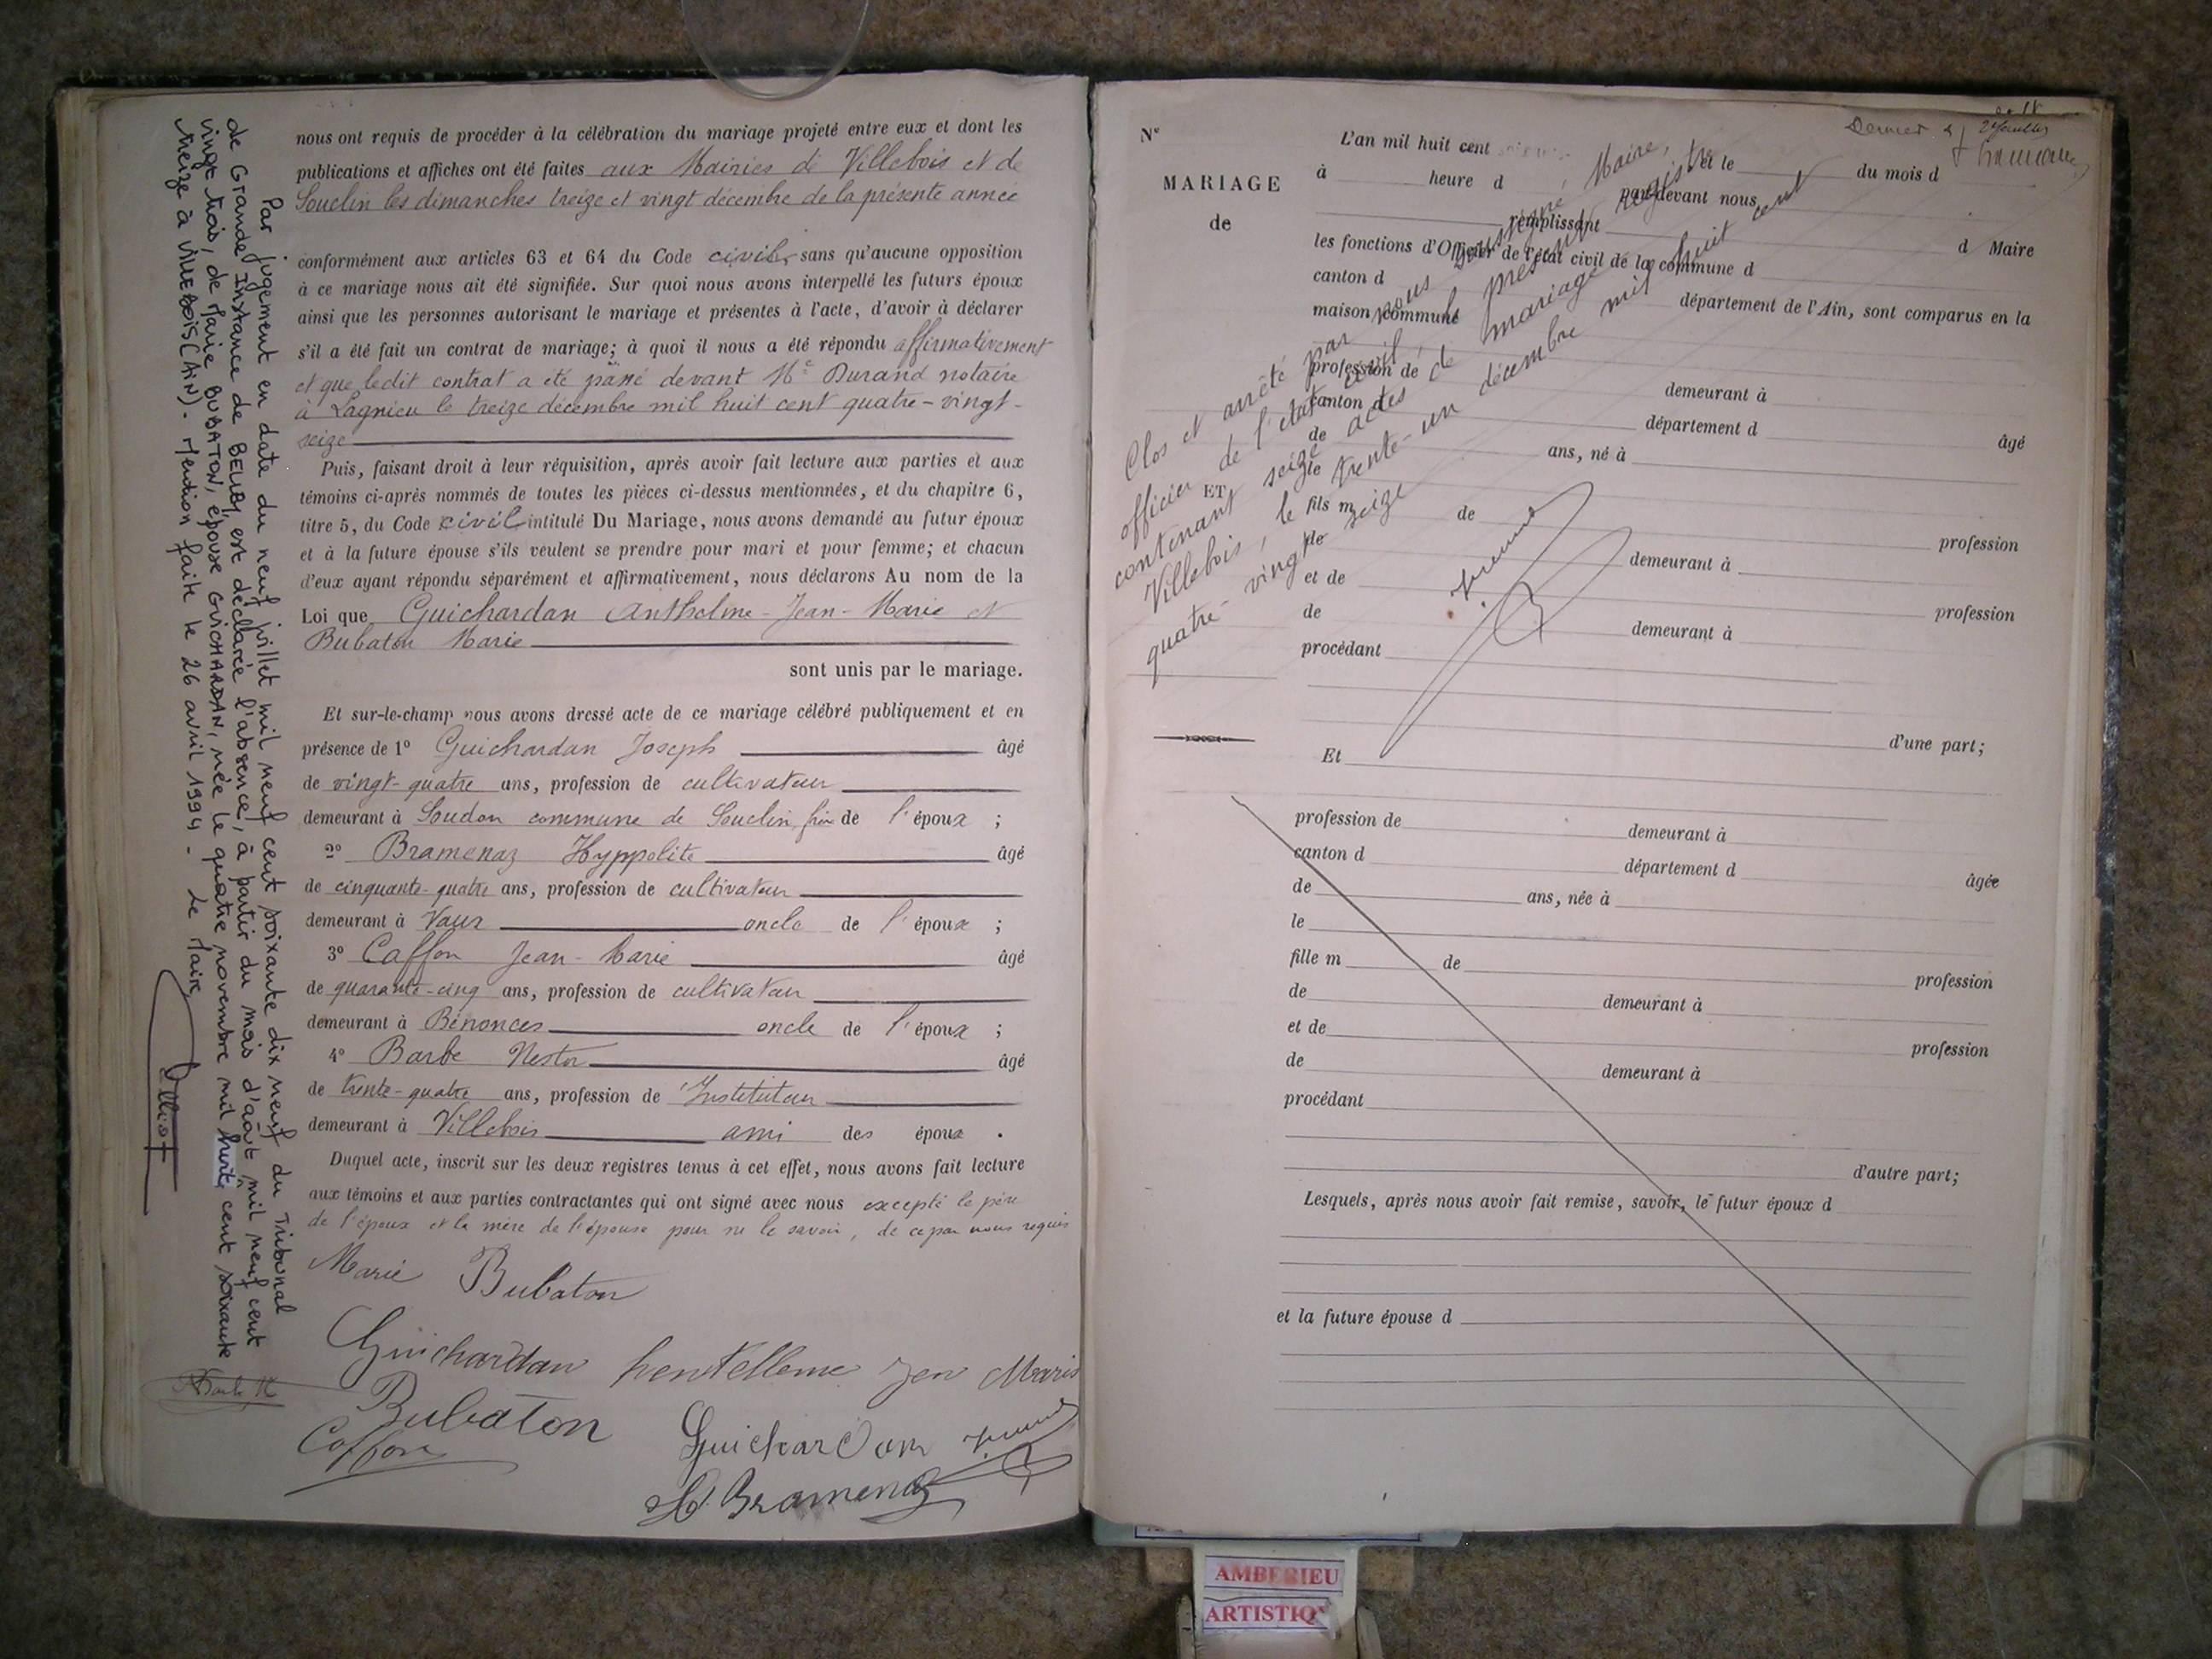 nous ont requis de procéder à la célébration du mariage projeté entre eux et dont les
publications et affiches ont été faites aux Mairies de Villebois et de
Souclin les dimanches treize et vingt décembre de la présente année
conformément aux articles 63 et 64 du Code civil, sans qu'aucune opposition
à ce mariage nous ait été signifiée. Sur quoi nous avons interpellé les futurs époux
ainsi que les personnes autorisant le mariage et présentes à l'acte, d'avoir à déclarer
s'il a été fait un contrat de mariage; à quoi il nous a été répondu affirmativement
et que ledit contrat a été passé devant Me Durand notaire
à Lagnieu le treize décembre mil huit cent quatre-vingt-
seize
Puis, faisant droit à leur réquisition, après avoir fait lecture aux parties et aux
témoins ci-après nommés de toutes les pièces ci-dessus mentionnées, et du chapitre 6,
titre 5, du Code civil intitulé Du Mariage, nous avons demandé au futur époux
et à la future épouse s'ils veulent se prendre pour mari et pour femme; et chacun
d'eux ayant répondu séparément et affirmativement, nous déclarons Au nom de la
Loi que Guichardan Anthelme-Jean-Marie et
Bubaton Marie
sont unis par le mariage.
Et sur-le-champ nous avons dressé acte de ce mariage célébré publiquement et en
présence de 1º Guichardan Joseph âgé
de vingt-quatre ans, profession de cultivateur
demeurant à Soudon commune de Souclin frère de l'époux ;
2º Bramenaz Hyppolite âgé
de cinquante-quatre ans, profession de cultivateur
demeurant à Vaux oncle de l'époux ;
3º Caffon Jean-Marie âgé
de quarante-cinq ans, profession de cultivateur
demeurant à Bénonces oncle de l'époux ;
4º Barbe Nestor âgé
de trente-quatre ans, profession de Instituteur
demeurant à Villebois ami des époux .
Duquel acte, inscrit sur les deux registres tenus à cet effet, nous avons fait lecture
aux témoins et aux parties contractantes qui ont signé avec nous excepté le père
de l'époux et la mère de l'épouse pour ne le savoir, de ce par nous requis
Marie Bubaton
Guichardan hentelleme jen Marie
Bubaton
Caffon
Guichardan
H. Bramenaz
Par jugement en date du neuf juillet mil neuf cent soixante dix neuf du Tribunal
de Grande Instance de BELLEY est déclarée l'absence, à partir du mois d'août mil neuf cent
vingt trois, de Marie BUBATON, épouse GUICHARDAN, née le quatre novembre mil huit cent soixante
treize à VILLEBOIS (AIN) - Mention faite le 26 avril 1994 - Le Maire,
Nº
MARIAGE
de
ET
Dernier
L'an mil huit cent
et le du mois d
à heure d
par-devant nous
remplissant
d Maire
les fonctions d'Officier de l'état civil de la commune d
canton d
département de l'Ain, sont comparus en la
maison commune
profession de
demeurant à
canton d
département d
âgé
de
ans, né à
le
fils m de
profession
de
demeurant à
et de
profession
de
demeurant à
procédant
d'une part;
Et
profession de
demeurant à
canton d
département d
âgée
de ans, née à
le
fille m de
profession
de
demeurant à
et de
profession
de
demeurant à
procédant
d'autre part;
Lesquels, après nous avoir fait remise, savoir, le futur époux d
et la future épouse d
Clos et arrêté par nous soussigné, Maire,
officier de l'état civil, le présent registre
contenant seize actes de mariage
Villebois, le trente-un décembre mil huit cent
quatre-vingt seize
AMBERIEU
ARTISTIQ